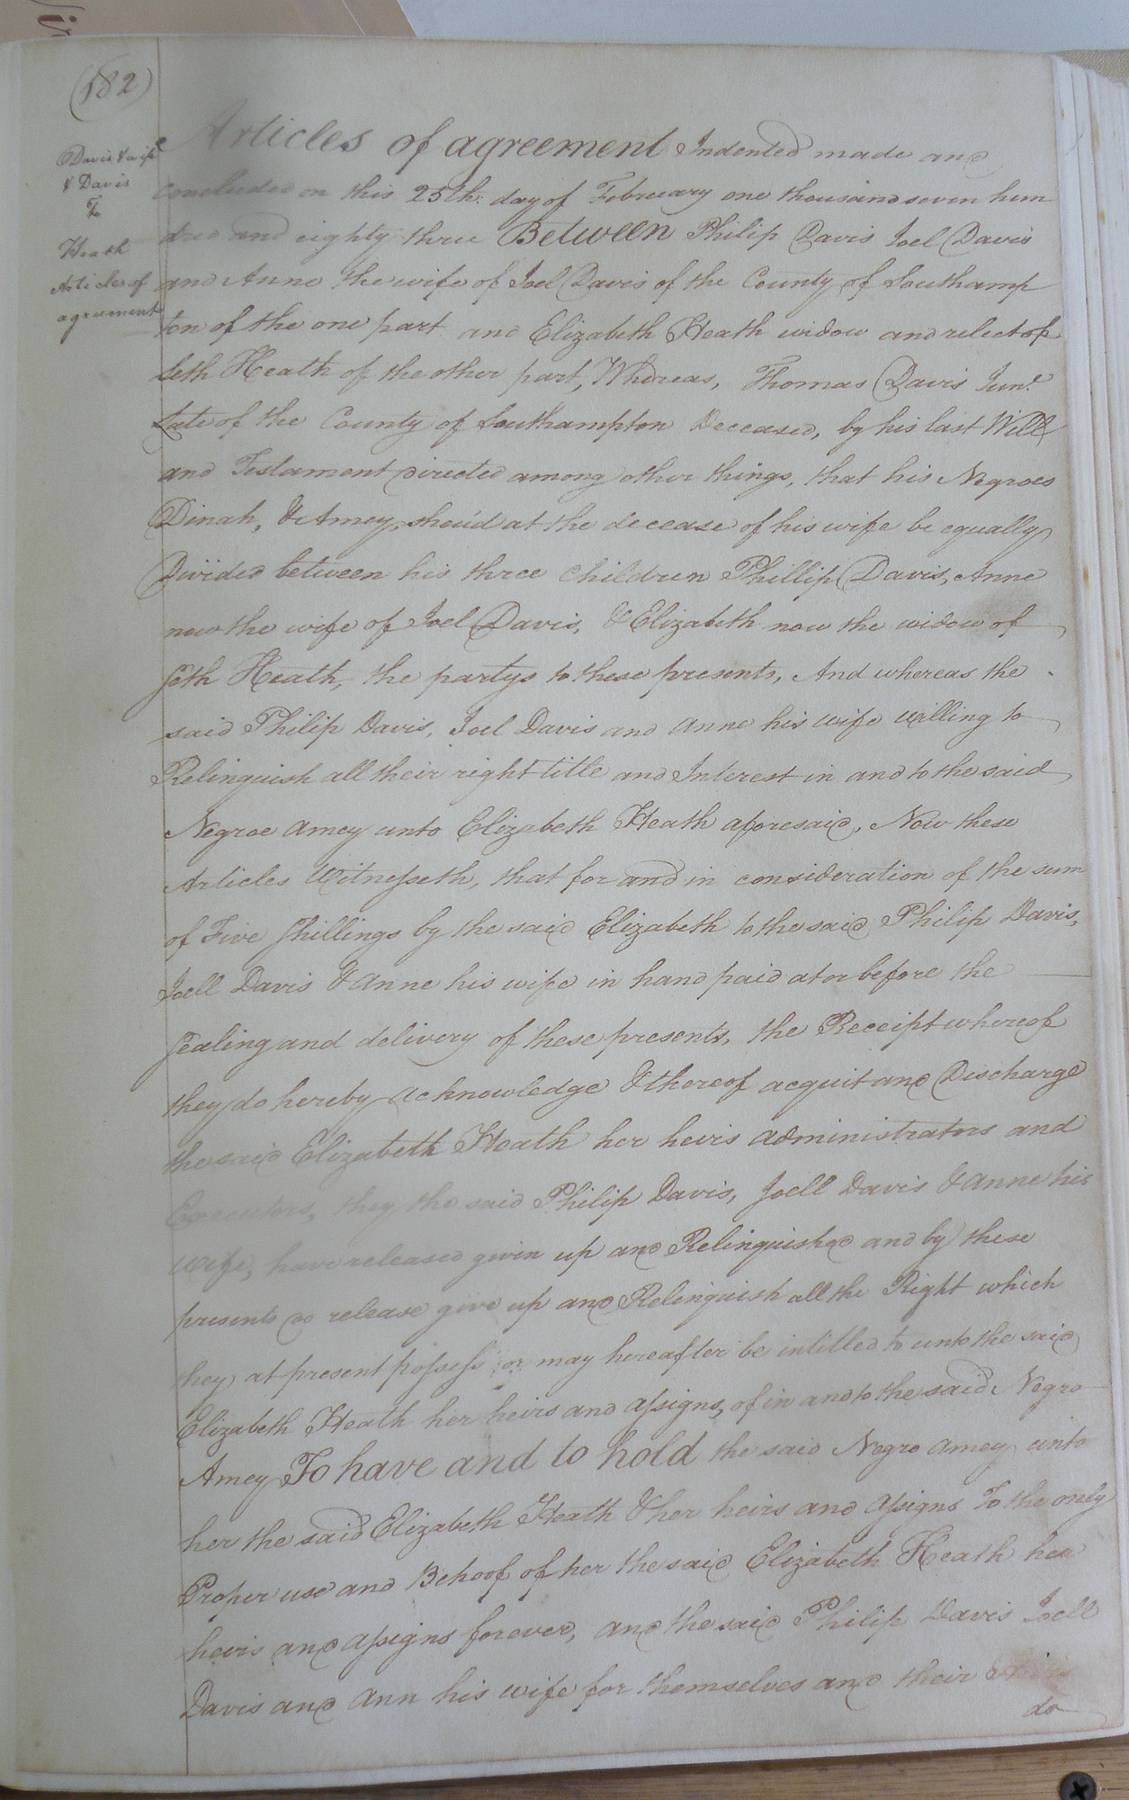 (182)
Davis & wife
& Davis
To
Heath
Articles of
agreement
Articles of agreement Indented made and
concluded on this 25th. day of February one thousand seven hun
dred and eighty three Between Philip Davis Joel Davis
and Anne the wife of Joel Davis of the County of Southamp
ton of the one part and Elizabeth Heath widow and relect of
Seth Heath of the other part, Whereas, Thomas Davis Junr.
Late of the County of Southampton Deceased, by his last Will
and Testament directed among other things, that his Negroes
Dinah, & Amey, shou'd at the decease of his wife be equally
Divided between his three Children Phillip Davis, Anne
now the wife of Joel Davis, & Elizabeth now the widow of
Seth Heath, the partys to these presents, And whereas the
said Philip Davis, Joel Davis and Anne his wife willing to
Relinquish all their right title and Interest in and to the said
Negroe Amey unto Elizabeth Heath aforesaid, Now these
Articles Witnesseth, that for and in consideration of the sum
of Five Shillings by the said Elizabeth to the said Philip Davis,
Joell Davis & Anne his wife in hand paid at or before the
Sealing and delivery of these presents, the Receipt whereof
they do hereby acknowledge & thereof acquit and Discharge
the said Elizabeth Heath her heirs administrators and
Executors, they the said Philip Davis, Joell Davis & Anne his
Wife, have released given up and Relinquished and by these
presents do release give up and Relinquish all the Right which
they at present possess or may hereafter be intitled to unto the said
Elizabeth Heath her heirs and assigns, of in and to the said Negro
Amey To have and to hold the said Negro Amey unto
her the said Elizabeth Heath & her heirs and assigns To the only
Proper use and Behoof of her the said Elizabeth Heath her
heirs and assigns forever, and the said Philip Davis Joell
Davis and Ann his wife for themselves and their heirs
do